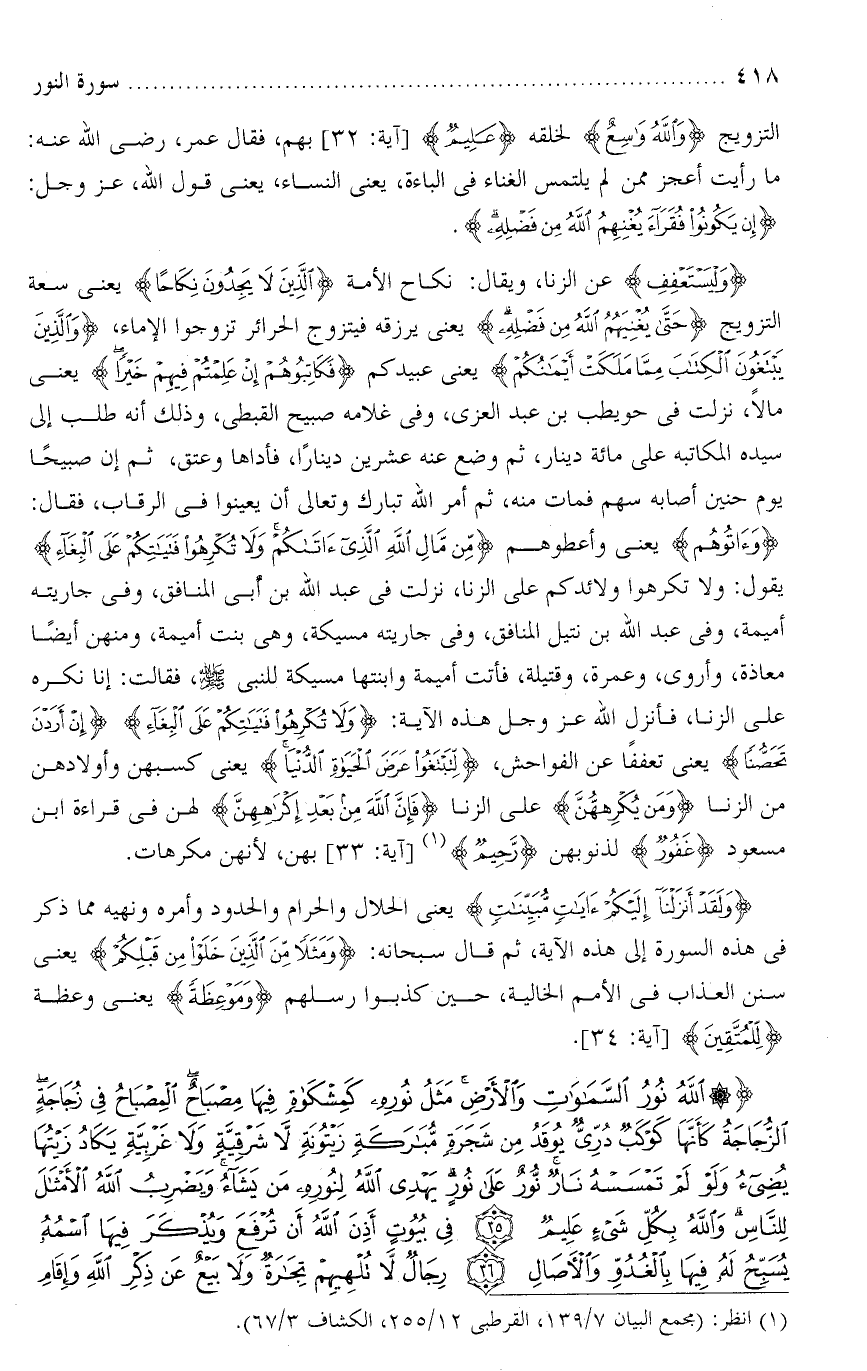 ٤١٨ ........................................................................ سورة النور
التزويج ﴿وَٱللَّهُ وَٰسِعٌ﴾ لخلقه ﴿عَلِيمٌ﴾ [آية: ٣٢] بهم، فقال عمر، رضى الله عنه:
ما رأيت أعجز ممن لم يلتمس الغناء فى الباءة، يعنى النساء، يعنى قول الله، عز وجل:
﴿إِن يَكُونُوا۟ فُقَرَآءَ يُغْنِهِمُ ٱللَّهُ مِن فَضْلِهِۦۗ﴾ .
﴿وَلْيَسْتَعْفِفِ﴾ عن الزنا، ويقال: نكاح الأمة ﴿ٱلَّذِينَ لَا يَجِدُونَ نِكَاحًا﴾ يعنى سعة
التزويج ﴿حَتَّىٰ يُغْنِيَهُمُ ٱللَّهُ مِن فَضْلِهِۦۗ﴾ يعنى يرزقه فيتزوج الحرائر تزوجوا الإماء، ﴿وَٱلَّذِينَ
يَبْتَغُونَ ٱلْكِتَٰبَ مِمَّا مَلَكَتْ أَيْمَٰنُكُمْ﴾ يعنى عبيدكم ﴿فَكَاتِبُوهُمْ إِنْ عَلِمْتُمْ فِيهِمْ خَيْرًاۖ﴾ يعنى
مالاً، نزلت فى حويطب بن عبد العزى، وفى غلامه صبيح القبطى، وذلك أنه طلب إلى
سيده المكاتبه على مائة دينار، ثم وضع عنه عشرين دينارًا، فأداها وعتق، ثم إن صبيحًا
يوم حنين أصابه سهم فمات منه، ثم أمر الله تبارك وتعالى أن يعينوا فى الرقاب، فقال:
﴿وَءَاتُوهُم﴾ يعنى وأعطوهم ﴿مِّن مَّالِ ٱللَّهِ ٱلَّذِىٓ ءَاتَىٰكُمْۚ وَلَا تُكْرِهُوا۟ فَتَيَٰتِكُمْ عَلَى ٱلْبِغَآءِ﴾
يقول: ولا تكرهوا ولائدكم على الزنا، نزلت فى عبد الله بن أُبى المنافق، وفى جاريته
أميمة، وفى عبد الله بن نتيل المنافق، وفى جاريته مسيكة، وهى بنت أميمة، ومنهن أيضًا
معاذة، وأروى، وعمرة، وقتيلة، فأتت أميمة وابنتها مسيكة للنبى ﷺ، فقالت: إنا نكره
على الزنا، فأنزل الله عز وجل هذه الآية: ﴿وَلَا تُكْرِهُوا۟ فَتَيَٰتِكُمْ عَلَى ٱلْبِغَآءِ﴾ ﴿إِنْ أَرَدْنَ
تَحَصُّنًا﴾ يعنى تعففًا عن الفواحش، ﴿لِّتَبْتَغُوا۟ عَرَضَ ٱلْحَيَوٰةِ ٱلدُّنْيَاۚ﴾ يعنى كسبهن وأولادهن
من الزنا ﴿وَمَن يُكْرِههُّنَّ﴾ على الزنا ﴿فَإِنَّ ٱللَّهَ مِنۢ بَعْدِ إِكْرَٰهِهِنَّ﴾ لهن فى قراءة ابن
مسعود ﴿غَفُورٌ﴾ لذنوبهن ﴿رَّحِيمٌ﴾(١) [آية: ٣٣] بهن، لأنهن مكرهات.
﴿وَلَقَدْ أَنزَلْنَآ إِلَيْكُمْ ءَايَٰتٍ مُّبَيِّنَٰتٍ﴾ يعنى الحلال والحرام والحدود وأمره ونهيه مما ذكر
فى هذه السورة إلى هذه الآية، ثم قال سبحانه: ﴿وَمَثَلًا مِّنَ ٱلَّذِينَ خَلَوْا۟ مِن قَبْلِكُمْ﴾ يعنى
سنن العذاب فى الأمم الخالية، حين كذبوا رسلهم ﴿وَمَوْعِظَةً﴾ يعنى وعظة
﴿لِّلْمُتَّقِينَ﴾ [آية: ٣٤].
﴿۞ ٱللَّهُ نُورُ ٱلسَّمَٰوَٰتِ وَٱلْأَرْضِۚ مَثَلُ نُورِهِۦ كَمِشْكَوٰةٍ فِيهَا مِصْبَاحٌۖ ٱلْمِصْبَاحُ فِى زُجَاجَةٍۖ
ٱلزُّجَاجَةُ كَأَنَّهَا كَوْكَبٌ دُرِّىٌّ يُوقَدُ مِن شَجَرَةٍ مُّبَٰرَكَةٍ زَيْتُونَةٍ لَّا شَرْقِيَّةٍ وَلَا غَرْبِيَّةٍ يَكَادُ زَيْتُهَا
يُضِىٓءُ وَلَوْ لَمْ تَمْسَسْهُ نَارٌۚ نُّورٌ عَلَىٰ نُورٍۗ يَهْدِى ٱللَّهُ لِنُورِهِۦ مَن يَشَآءُۚ وَيَضْرِبُ ٱللَّهُ ٱلْأَمْثَٰلَ
لِلنَّاسِۗ وَٱللَّهُ بِكُلِّ شَىْءٍ عَلِيمٌ ٣٥ فِى بُيُوتٍ أَذِنَ ٱللَّهُ أَن تُرْفَعَ وَيُذْكَرَ فِيهَا ٱسْمُهُۥ
يُسَبِّحُ لَهُۥ فِيهَا بِٱلْغُدُوِّ وَٱلْأَصَالِ ٣٦ رِجَالٌ لَّا تُلْهِيهِمْ تِجَٰرَةٌ وَلَا بَيْعٌ عَن ذِكْرِ ٱللَّهِ وَإِقَامِ
(١) انظر: (مجمع البيان ١٣٩/٧، القرطبى ٢٥٥/١٢، الكشاف ٦٧/٣).